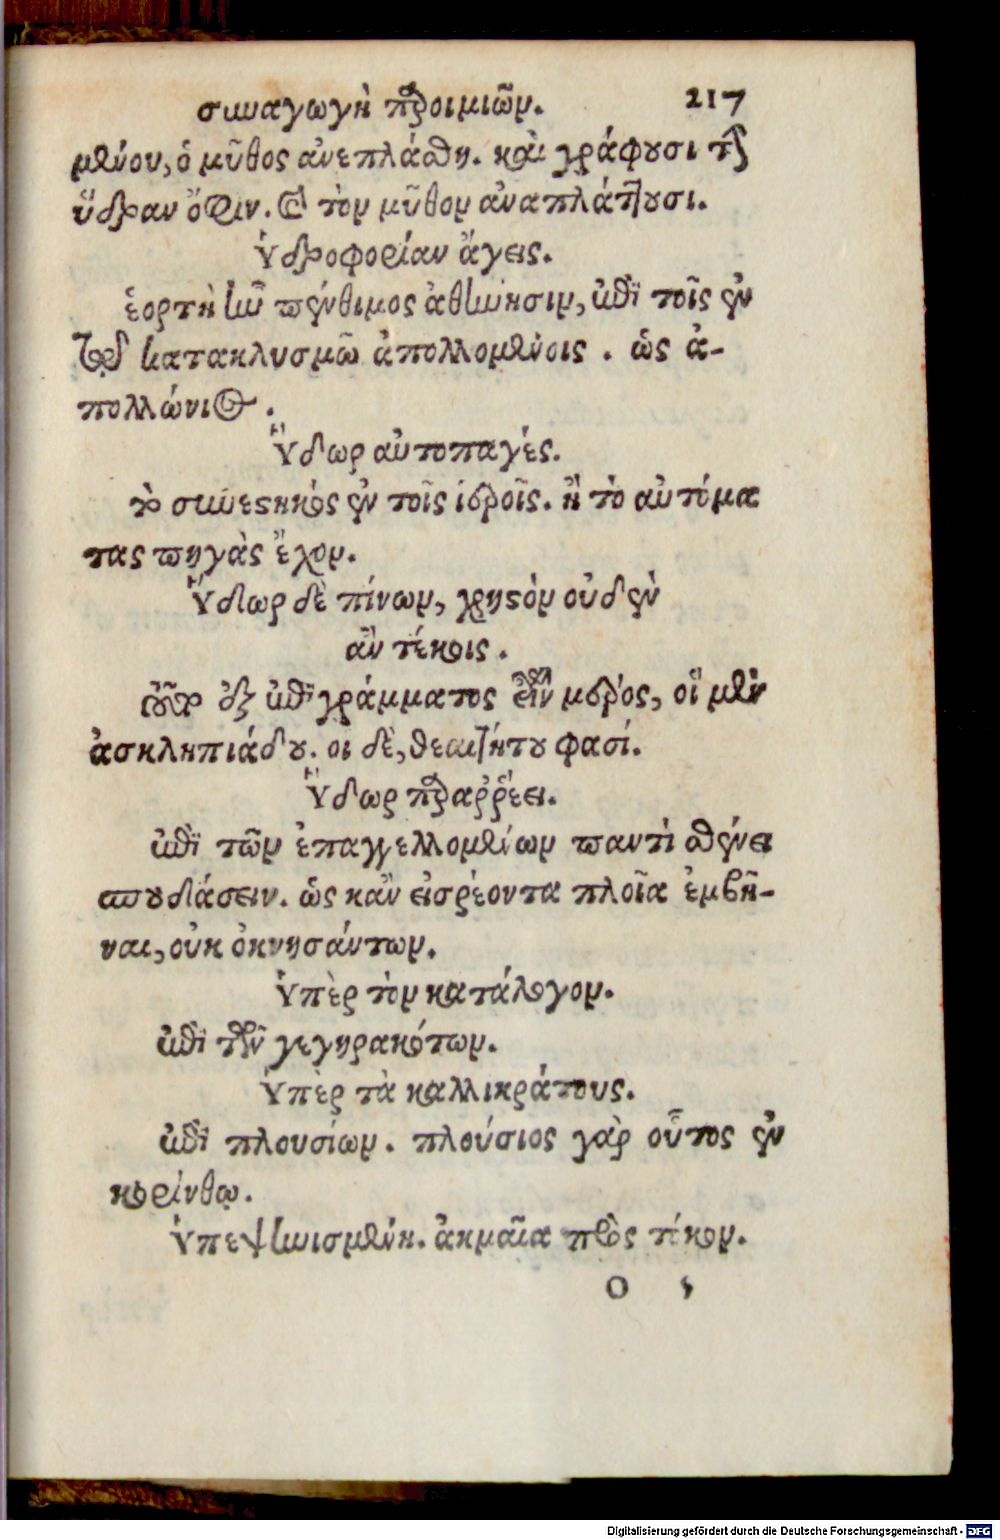 συναγωγὴ παροιμιῶν. 217
μένου, ὁ μῦθος ἀνεπλάσθη. καὶ γράφουσι τὴν
ὕδραν ὄφιν. καὶ τὸν μῦθον ἀναπλάττουσι.
Ὑδροφορίαν ἄγεις.
ἑορτὴ ἦν πένθιμος ἀθήνησιν, ἐπὶ τοῖς ἐν
τῷ κατακλυσμῶ ἀπολλομένοις . ὡς ἀ-
πολλώνιος .
Ὕδωρ αὐτοπαγές.
τὸ συνεστηκὸς ἐν τοῖς ἱεροῖς. ἢ τὸ αὐτόμα
τας πηγὰς ἔχον.
Ὕδωρ δὲ πίνων, χρηστὸν οὐδὲν
ἂν τέκοις .
ἐπιγράμματος ἐστὶν μέρος, οἱ μὲν
ἀσκληπιάδου. οἱ δὲ, θεαιτήτου φασί.
Ὕδωρ παραῤῥέει.
ἐπὶ τῶν ἐπαγγελλομένων παντὶ σθένει
σπουδάσειν. ὡς κἂν εἰσρέοντα πλοῖα ἐμβῆ-
ναι, οὐκ ὀκνησάντων.
Ὑπὲρ τὸν κατάλογον.
ἐπὶ τῶν γεγηρακότων.
Ὑπὲρ τὰ καλλικράτους.
ἐπὶ πλουσίων. πλούσιος γὰρ οὗτος ἐν
κορίνθῳ.
Ὑπεψηνισμένη. ἀκμαῖα πρὸς τόκον.
O 5
Digitalisierung gefördert durch die Deutsche Forschungsgemeinschaft - DFG